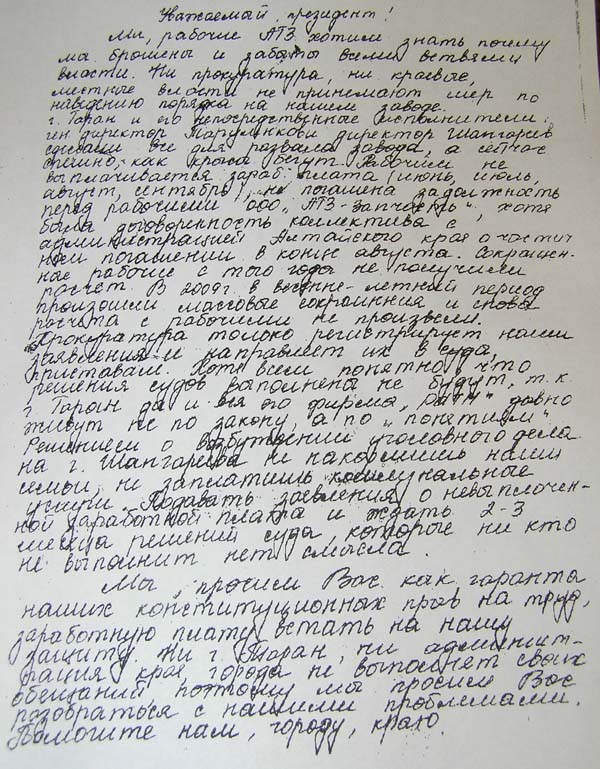 Уважаемый, президент!
Мы, рабочие АТЗ хотим знать почему
мы брошены и забыты всеми ветвями
власти. Ни прокуратура, ни краевые,
местные власти не принемают мер по
наведению порядка на нашем заводе.
г. Таран и его непосредственные исполнители:
ген директор и директор Шангареев
сделали все для развала завода, а сейчас
спешно, как крысы бегут. Рабочим не
выплачивается зараб. плата (июнь, июль,
август, сентябрь), не погашена задолжность
перед рабочими ООО „АТЗ-Запчасть", хотя
была договоренность коллектива с
администрацией Алтайского края о частич
ном погашении в конце августа. Сокращен-
ные рабочие с того года не получили
расчет. В 2009г. в весенне-летний период
произошли массовые сокращения и снова
расчета с рабочими не произвели.
Прокуратура только регистрирует наши
заявления и направляет их в суда,
приставам. Хотя всем понятно что
решения судов выполнены не будут, т.к.
г. Таран да и вся его фирма давно
живут не по закону, а по „понятиям".
Решением о возбуждении уголовного дела
на г. Шангареева не накормишь наши
семьи, не заплатишь коммунальные
услуги. Подавать заявления о невыплочен-
ной заработной плата и ждать 2-3
месяца решений суда, которые ни кто
не выполнит нет смысла.
Мы, просим Вас как гаранта
наших конституционных прав на труд,
заработную плату встать на нашу
защиту. Ни г. Таран, ни админист-
рация края, города не выполняет своих
обещаний поэтому мы просим Вас
разобраться с нашими проблемами.
Помогите нам, городу, краю.